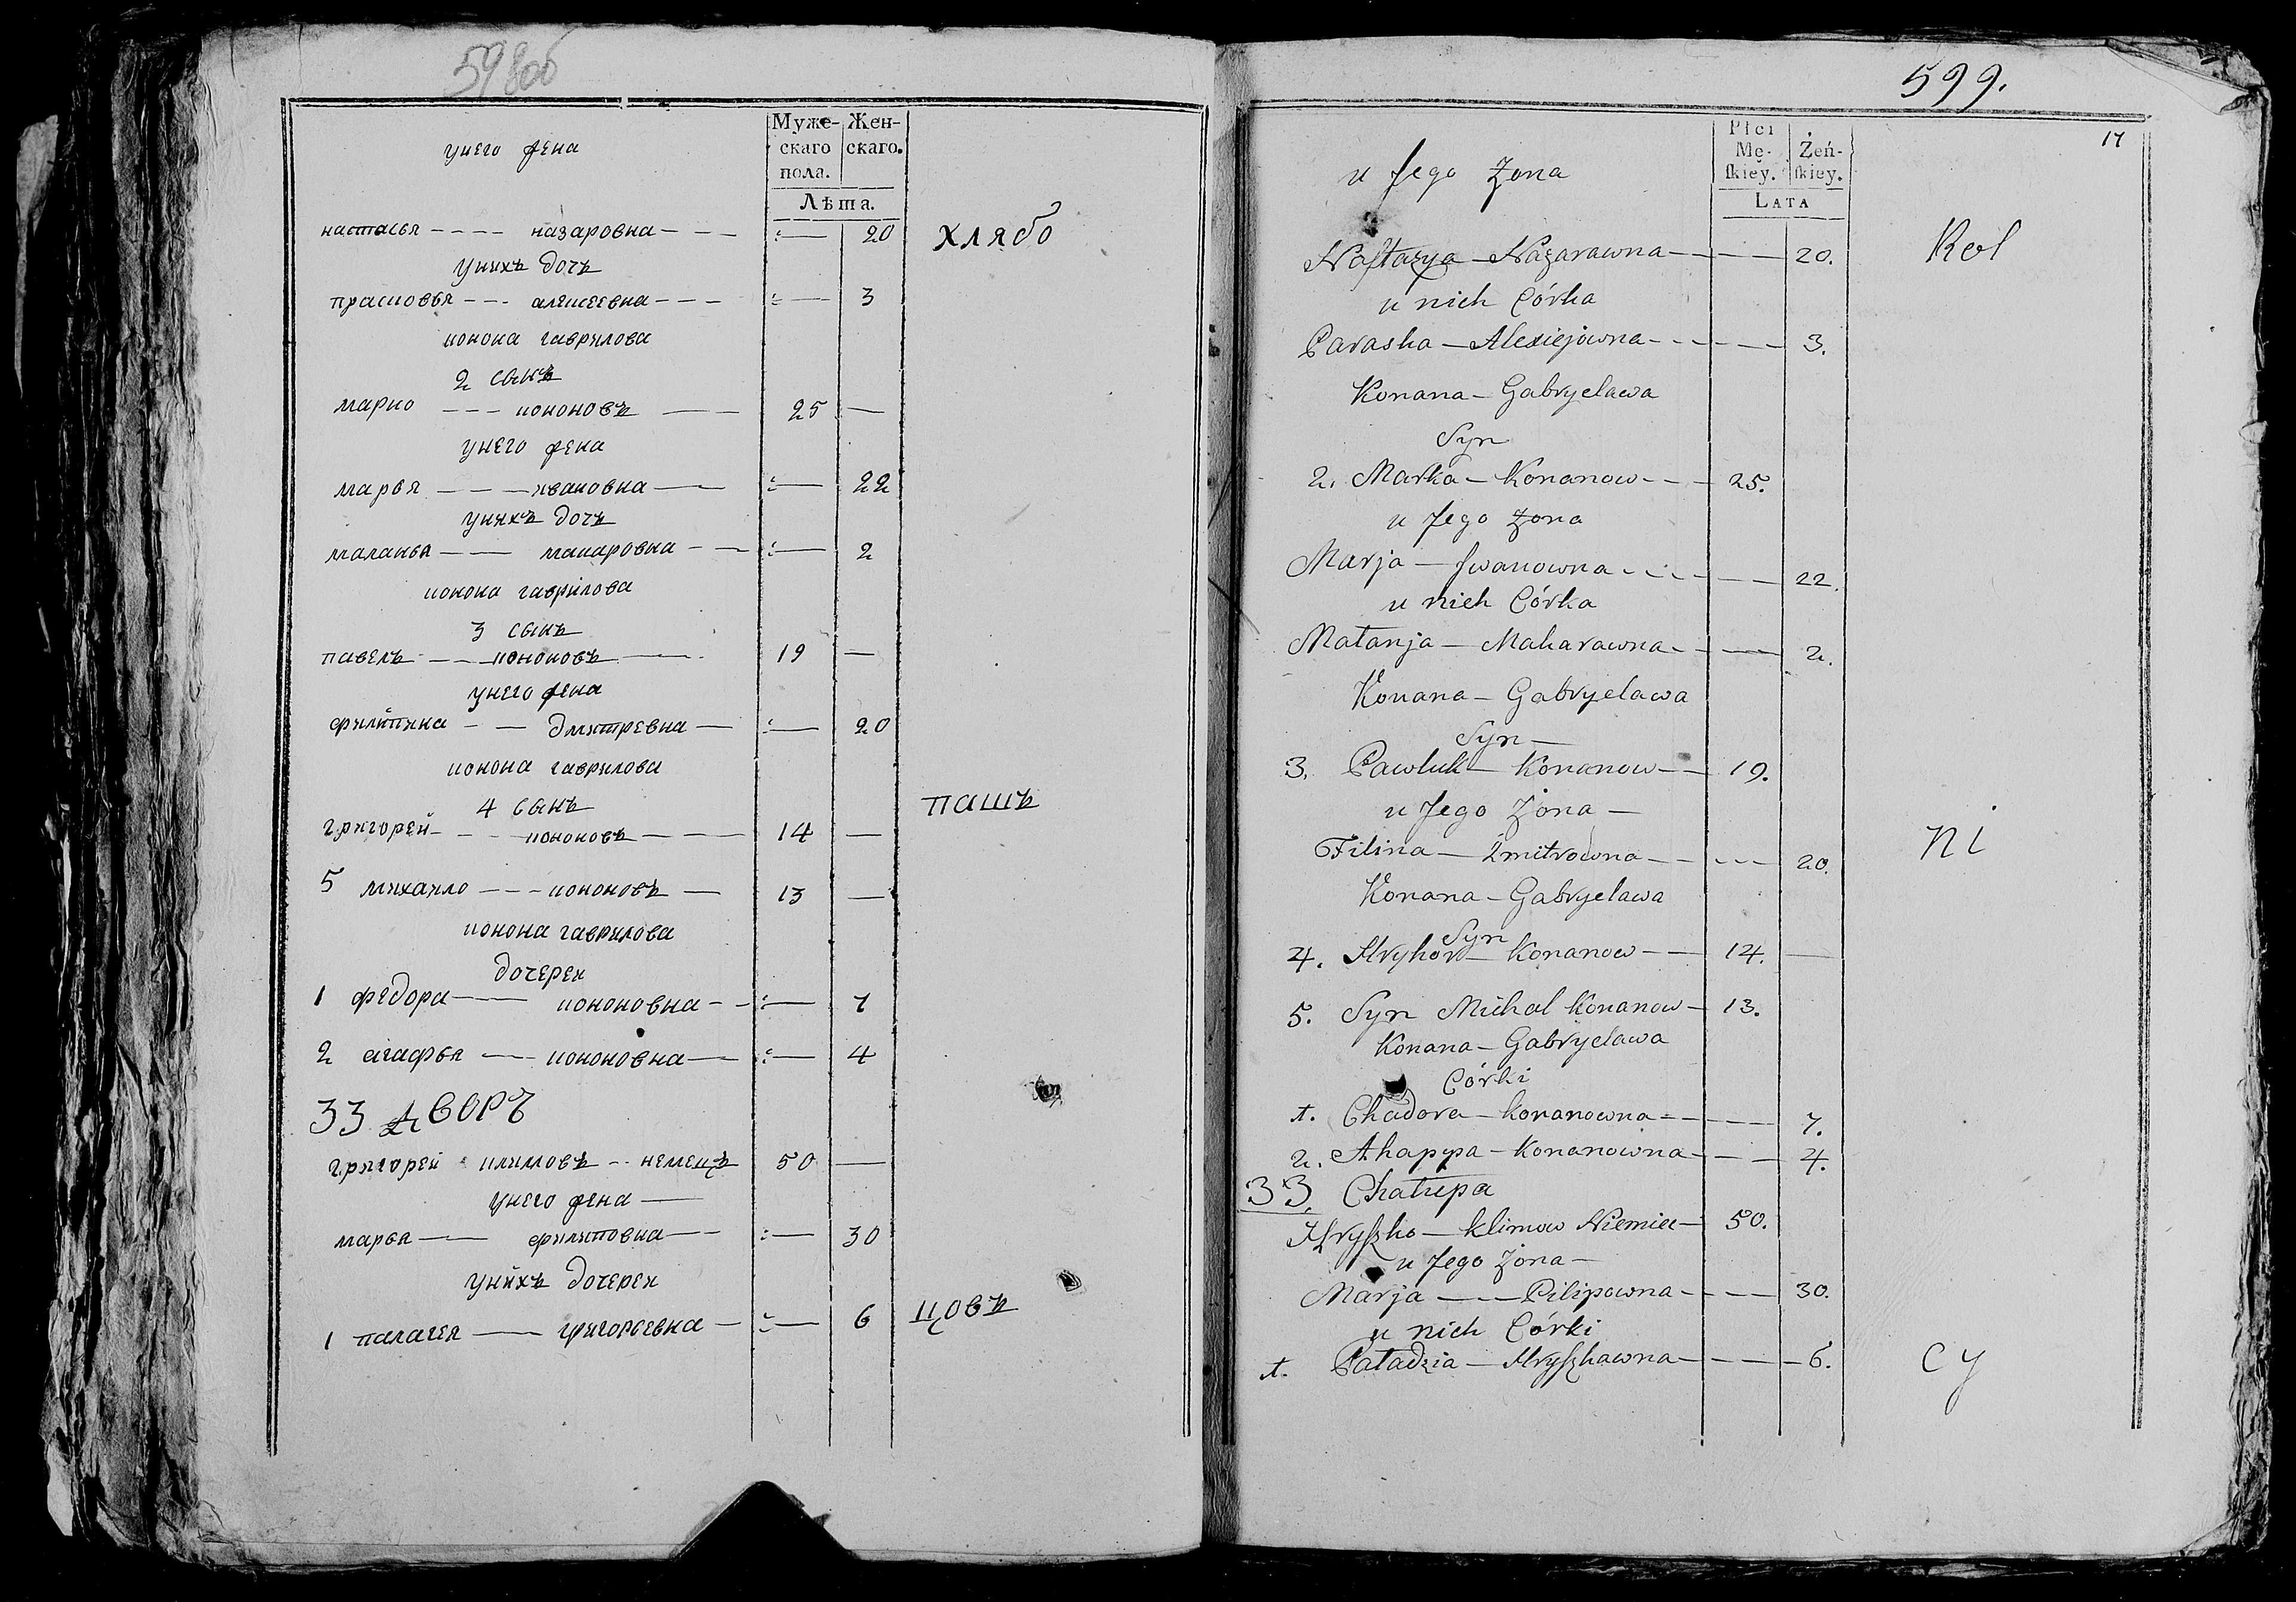 598об
унего жена
Муже-
скаго
пола.
Жен-
скаго.
Лѣта.
настасья - - - - назаровна - - - 20
хлябо
унихъ дочъ
прасковья - - - алексеевна - - - 3
конона гаврилова
2 сынъ
марко - - - кононовъ — 25 —
унего жена
марья - - - ивановна — 22
унихъ дочъ
маланья - — макаровна - - 2
конона гаврилова
3 сынъ
павелъ - - кононовъ — 19 —
унего жена
филипика - - дмитревна — 20
конона гаврилова
4 сынъ
пашъ
григорей - - - кононовъ - - - 14 —
5 михайло - - - кононовъ — 13 —
конона гаврилова
дочереи
1 федора — кононовна - - 7
2 агафья — кононовна — 4
33 дворъ
григорей климовъ - - немецъ 50 —
унего жена —
марья — филиповна — 30
унихъ дочереи
1 палагея — григорьевна — 6
цовъ
599.
17
Płci
Mę-
ſkiey.
Żeń-
ſkiey.
Lata
u Jego Żona
Naſtazya — Nazarawna - - - 20.
Kol
u nich Córka
Paraska — Alexiejowna - - - 3.
Konana — Gabryelawa
Syn
2. Marka — Konanow - - - 25.
u Jego Żona
Marja — Iwanowna - - - 22.
u nich Córka
Małanja — Makarawna - - - 2.
Konana — Gabryelawa
Syn —
3. Pawluk — Konanow — 19.
u Jego Żona —
Filina — Zmitrowna - - - 20.
ni
Konana — Gabryelawa
Syn
4. Hryhor — Konanow — 14. —
5. Syn Michał Konanow — 13.
Konana — Gabryelawa
Córki
1. Chadora — Konanowna - - - 7.
2. Ahappa — Konanowna - - - 4.
33. Chałupa
Hryſzko — Klimow Niemiec — 50.
u Jego Żona —
Marja — — Pilipowna - - - 30.
u nich Córki
1. Paładzia — Hryſzkawna - - - 6.
cy